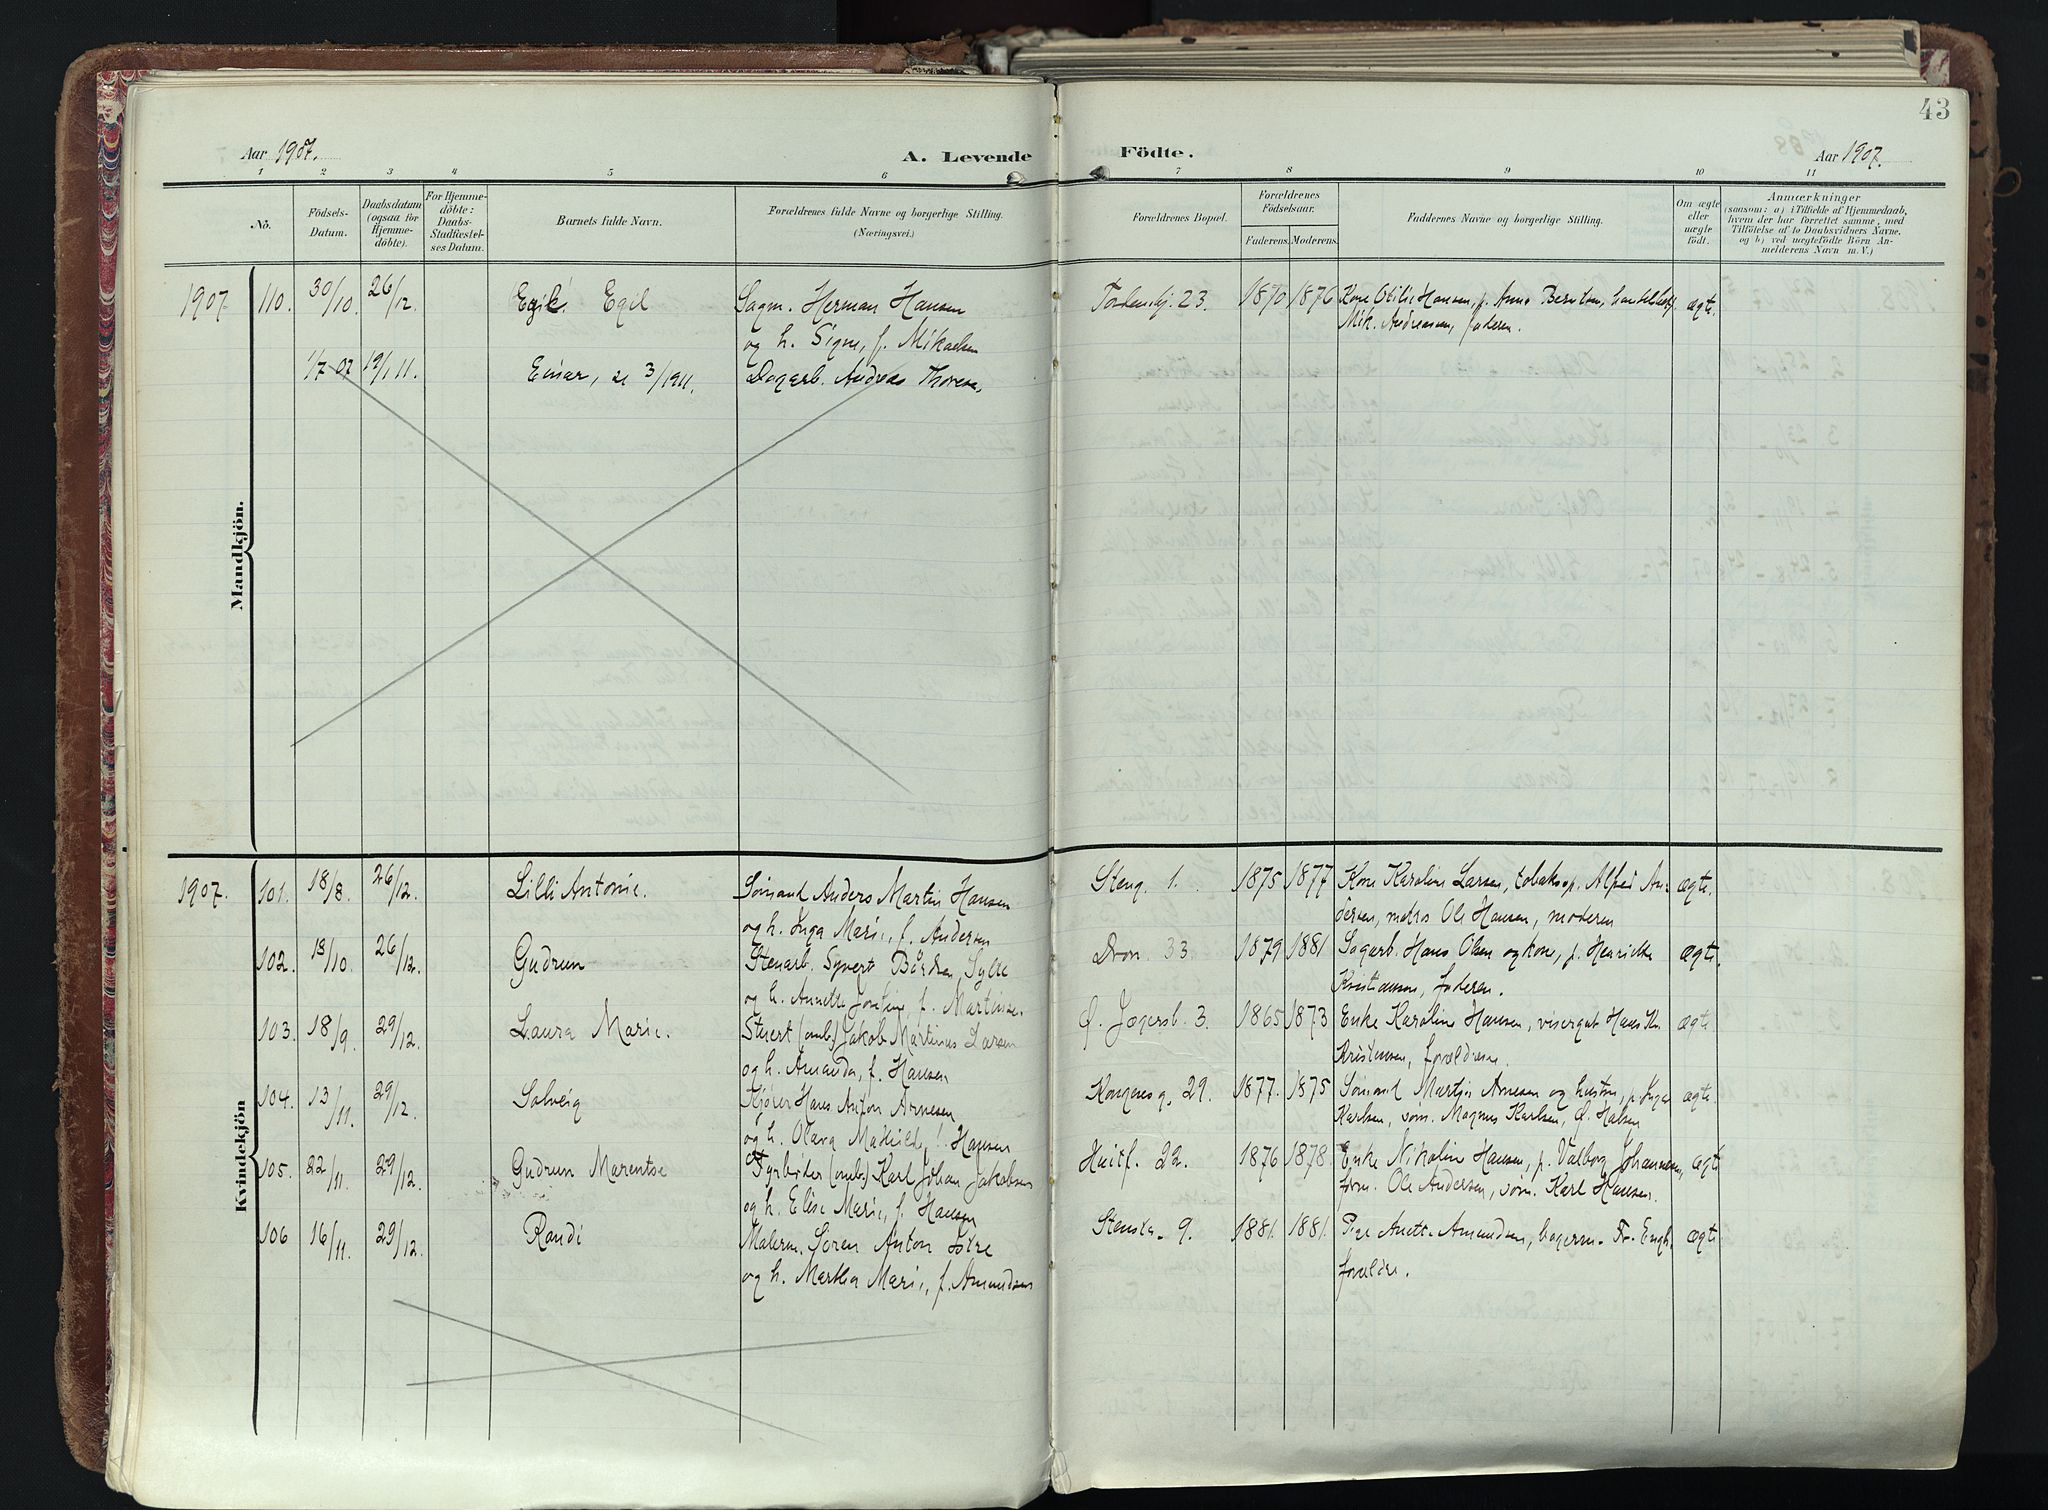 43
Aar 1907.
A. Levende Födte.
Aar 1907.
1 2 3 4 5 6 7 8 9 10 11
No.
Födsels-Datum.
Daabsdatum (ogsaa for Hjemme-döbte).
For Hjemme-döbte: Daabs-Stadfæstel-ses Datum.
Barnets fulde Navn.
Forældrenes fulde Navne og borgerlige Stilling.
(Næringsvei.)
Forældrenes Bopæl.
Forældrenes Födselsaar.
Faderens. Moderens.
Faddernes Navne og borgerlige Stilling.
Om ægte eller uægte født.
Anmærkninger
(saasom: a) i Tilfælde af Hjemmedaab,
hvem der har forrettet samme, med
Tilföielse af to Daabsvidners Navne.
og b) ved uægtefödte Börn An-
melderens Navn m. V.)
Mandkjön.
1907 110. 30/10. 26/12. Egil Sagm. Herman Hansen Tordenskj. 23. 1870 1876 Kone Otilie Hansen, p. Anna Berntsen, ægte.
og h. Signe, f. Mikaelsen Mik. Andreassen, faderen.
1/7 07 19/1 11. Einar, 21 3/1911. Dagarb. Andreas Thoresen.
Kvindekjön
1907. 101. 18/8. 26/12. Lilli Antonie. Sømand Anders Martin Hansen Steng. 1. 1875 1877 Kone Karoline Larsen, tobaksp. Alfred An- ægte.
og h. Inga Marie, f. Andersen dersen, matros Ole Hansen, moderen
102. 13/10. 26/12. Gudrun Stenarb. Syvert Bårdsen Sylte Dron. 33 1879 1881. Sagarb. Hans Olsen og kone, p. Henrikke ægte.
og h. Annette Josefine f. Martinsen. Kristiansen, faderen.
103. 18/9. 29/12. Laura Marie. Stuert (omb.) Jakob Martinus Larsen Ø. Jegersb. 3. 1865 1873 Enke Karoline Hansen, visergut Hans Kr. ægte
og h. Amanda, f. Hansen Kristiansen, forældrene.
104. 13/11. 29/12. Solveig Kjører Hans Anton Arnesen Kongensg. 29. 1877. 1875 Sømand Martin Arnesen og hustru, p. Inga ægte.
og h. Olava Mathilde f. Hansen Karlsen, søm. Magnus Karlsen, O. Halsen
105. 22/11. 29/12. Gudrun Marentse Fyrbøder (omb.) Karl Johan Jakobsen Huitf. 22. 1876 1878. Enke Nikoline Hansen, p. Valborg Johannesen, ægte
og h. Elise Marie, f. Hansen form. Ole Andersen, søm. Karl Hansen.
106 16/11. 29/12. Randi Malerm. Søren Anton Istre Stensta. 9. 1881. 1881. Pige Anette Amundsen, bagerm. Fr. Engh, ægte
og h. Martha Marie, f. Amundsen forældre.